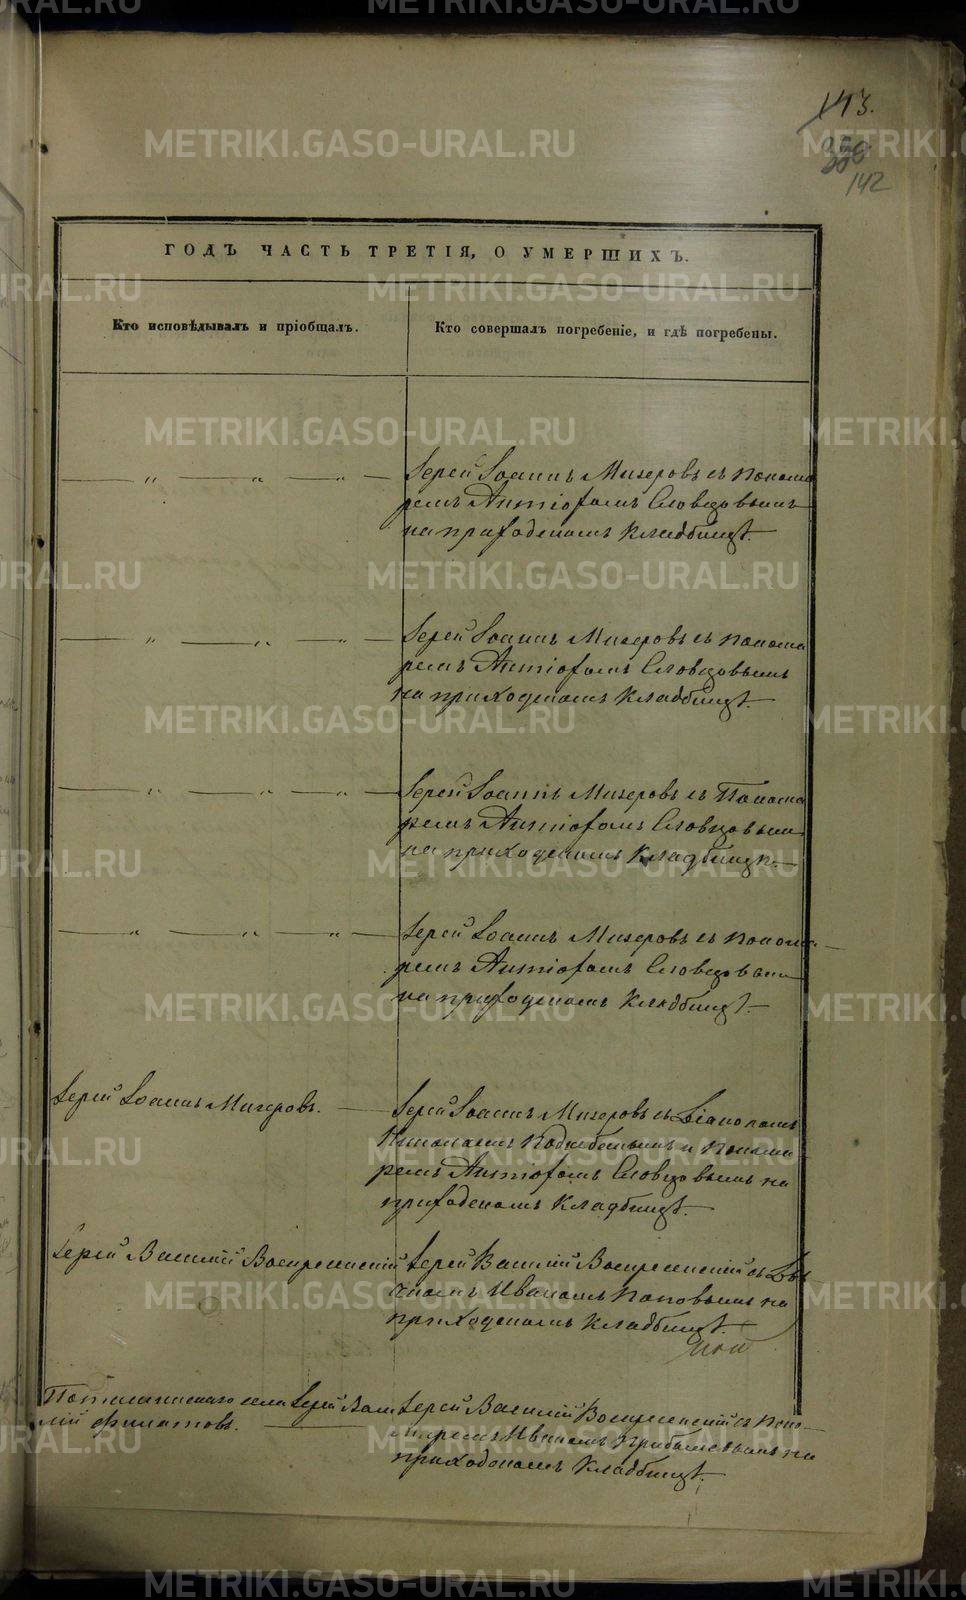 143.
350
142
ГОДЪ ЧАСТЬ ТРЕТІЯ, О УМЕРШИХЪ.
Кто исповѣдывалъ и пріобщалъ.
Кто совершалъ погребеніе, и гдѣ погребены.
— „ — „ — „ —
Іерей Іоаннъ Мизеровъ съ понома
ремъ Антіохомъ Словцовымъ
на приходскомъ кладбищѣ.
— „ — „ — „ —
Іерей Іоаннъ Мизеровъ съ понома
ремъ Антіохомъ Словцовымъ
на приходскомъ кладбищѣ.
— „ — „ — „ —
Іерей Іоаннъ Мизеровъ съ Понома
ремъ Антіохомъ Словцовым
на приходскомъ кладбищѣ.
— „ — „ — „ —
Іерей Іоаннъ Мизеровъ съ понома
ремъ Антіохомъ Словцовым
на приходскомъ кладбищѣ.
Іерей Іоаннъ Мизеровъ.
Іерей Іоаннъ Мизеровъ съ Діакономъ
и понома
ремъ Антіохомъ Словцовымъ на
приходскомъ кладбищѣ.
Іерей Василій Воскресенскій
Іерей Василій Воскресенскій съ Дья
кономъ Иваномъ Поповымъ на
приходскомъ кладбищѣ.
села Іерей Васи
лій Филатовъ.
Іерей Василій Воскресенскій съ Поно
маремъ Иваномъ на
приходскомъ кладбищѣ.
METRIKI.GASO-URAL.RU